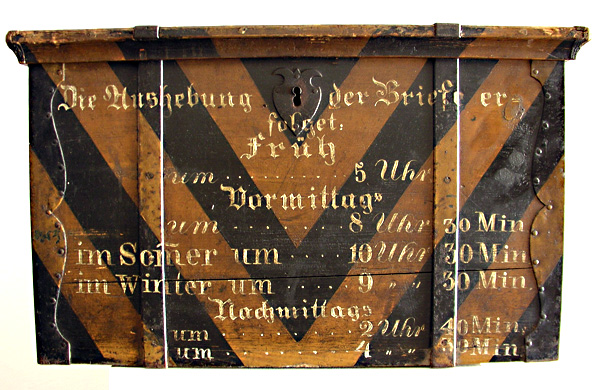 Die Aushebung der Briefe er-
folget:
Früh
um . . . . . . . . . . 5 Uhr
Vormittags
um . . . . . . . . . . 8 Uhr 30 Min
im Som̅er um . . . . . 10 Uhr 30 Min.
im Winter um . . . . . 9 „ „ 30 Min.
Nachmittags
um . . . . . . . . . . 2 Uhr 40 Min.
um . . . . . . . . . . 4 „ „ 30 Min.